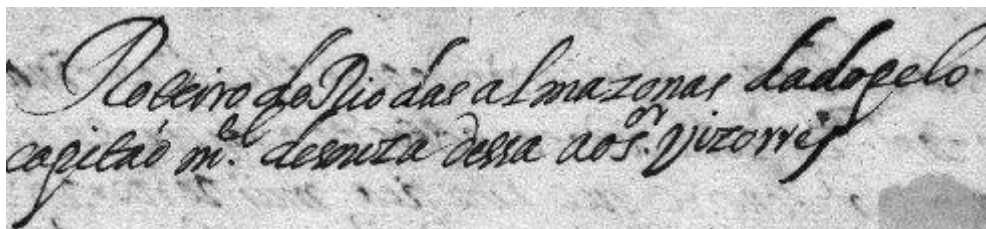 Roteiro do Rio das almazonas dado pelo
capitaõ m.el desouza dessa ao s.or Vizorrej